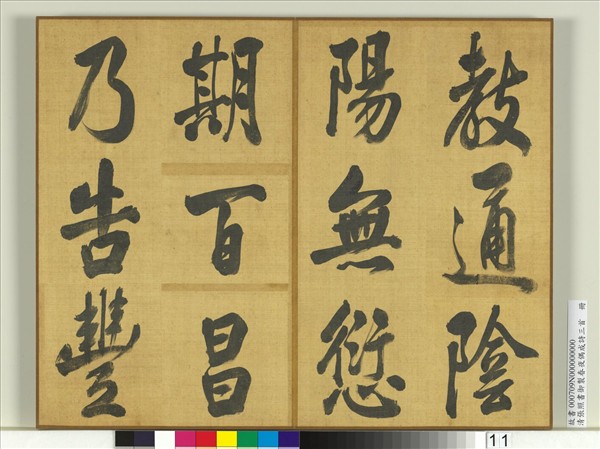 敎通陰
陽無愆
期百昌
乃告豐
故書000709N000000000
清張照書御製春夜偶成詩三首 冊
11